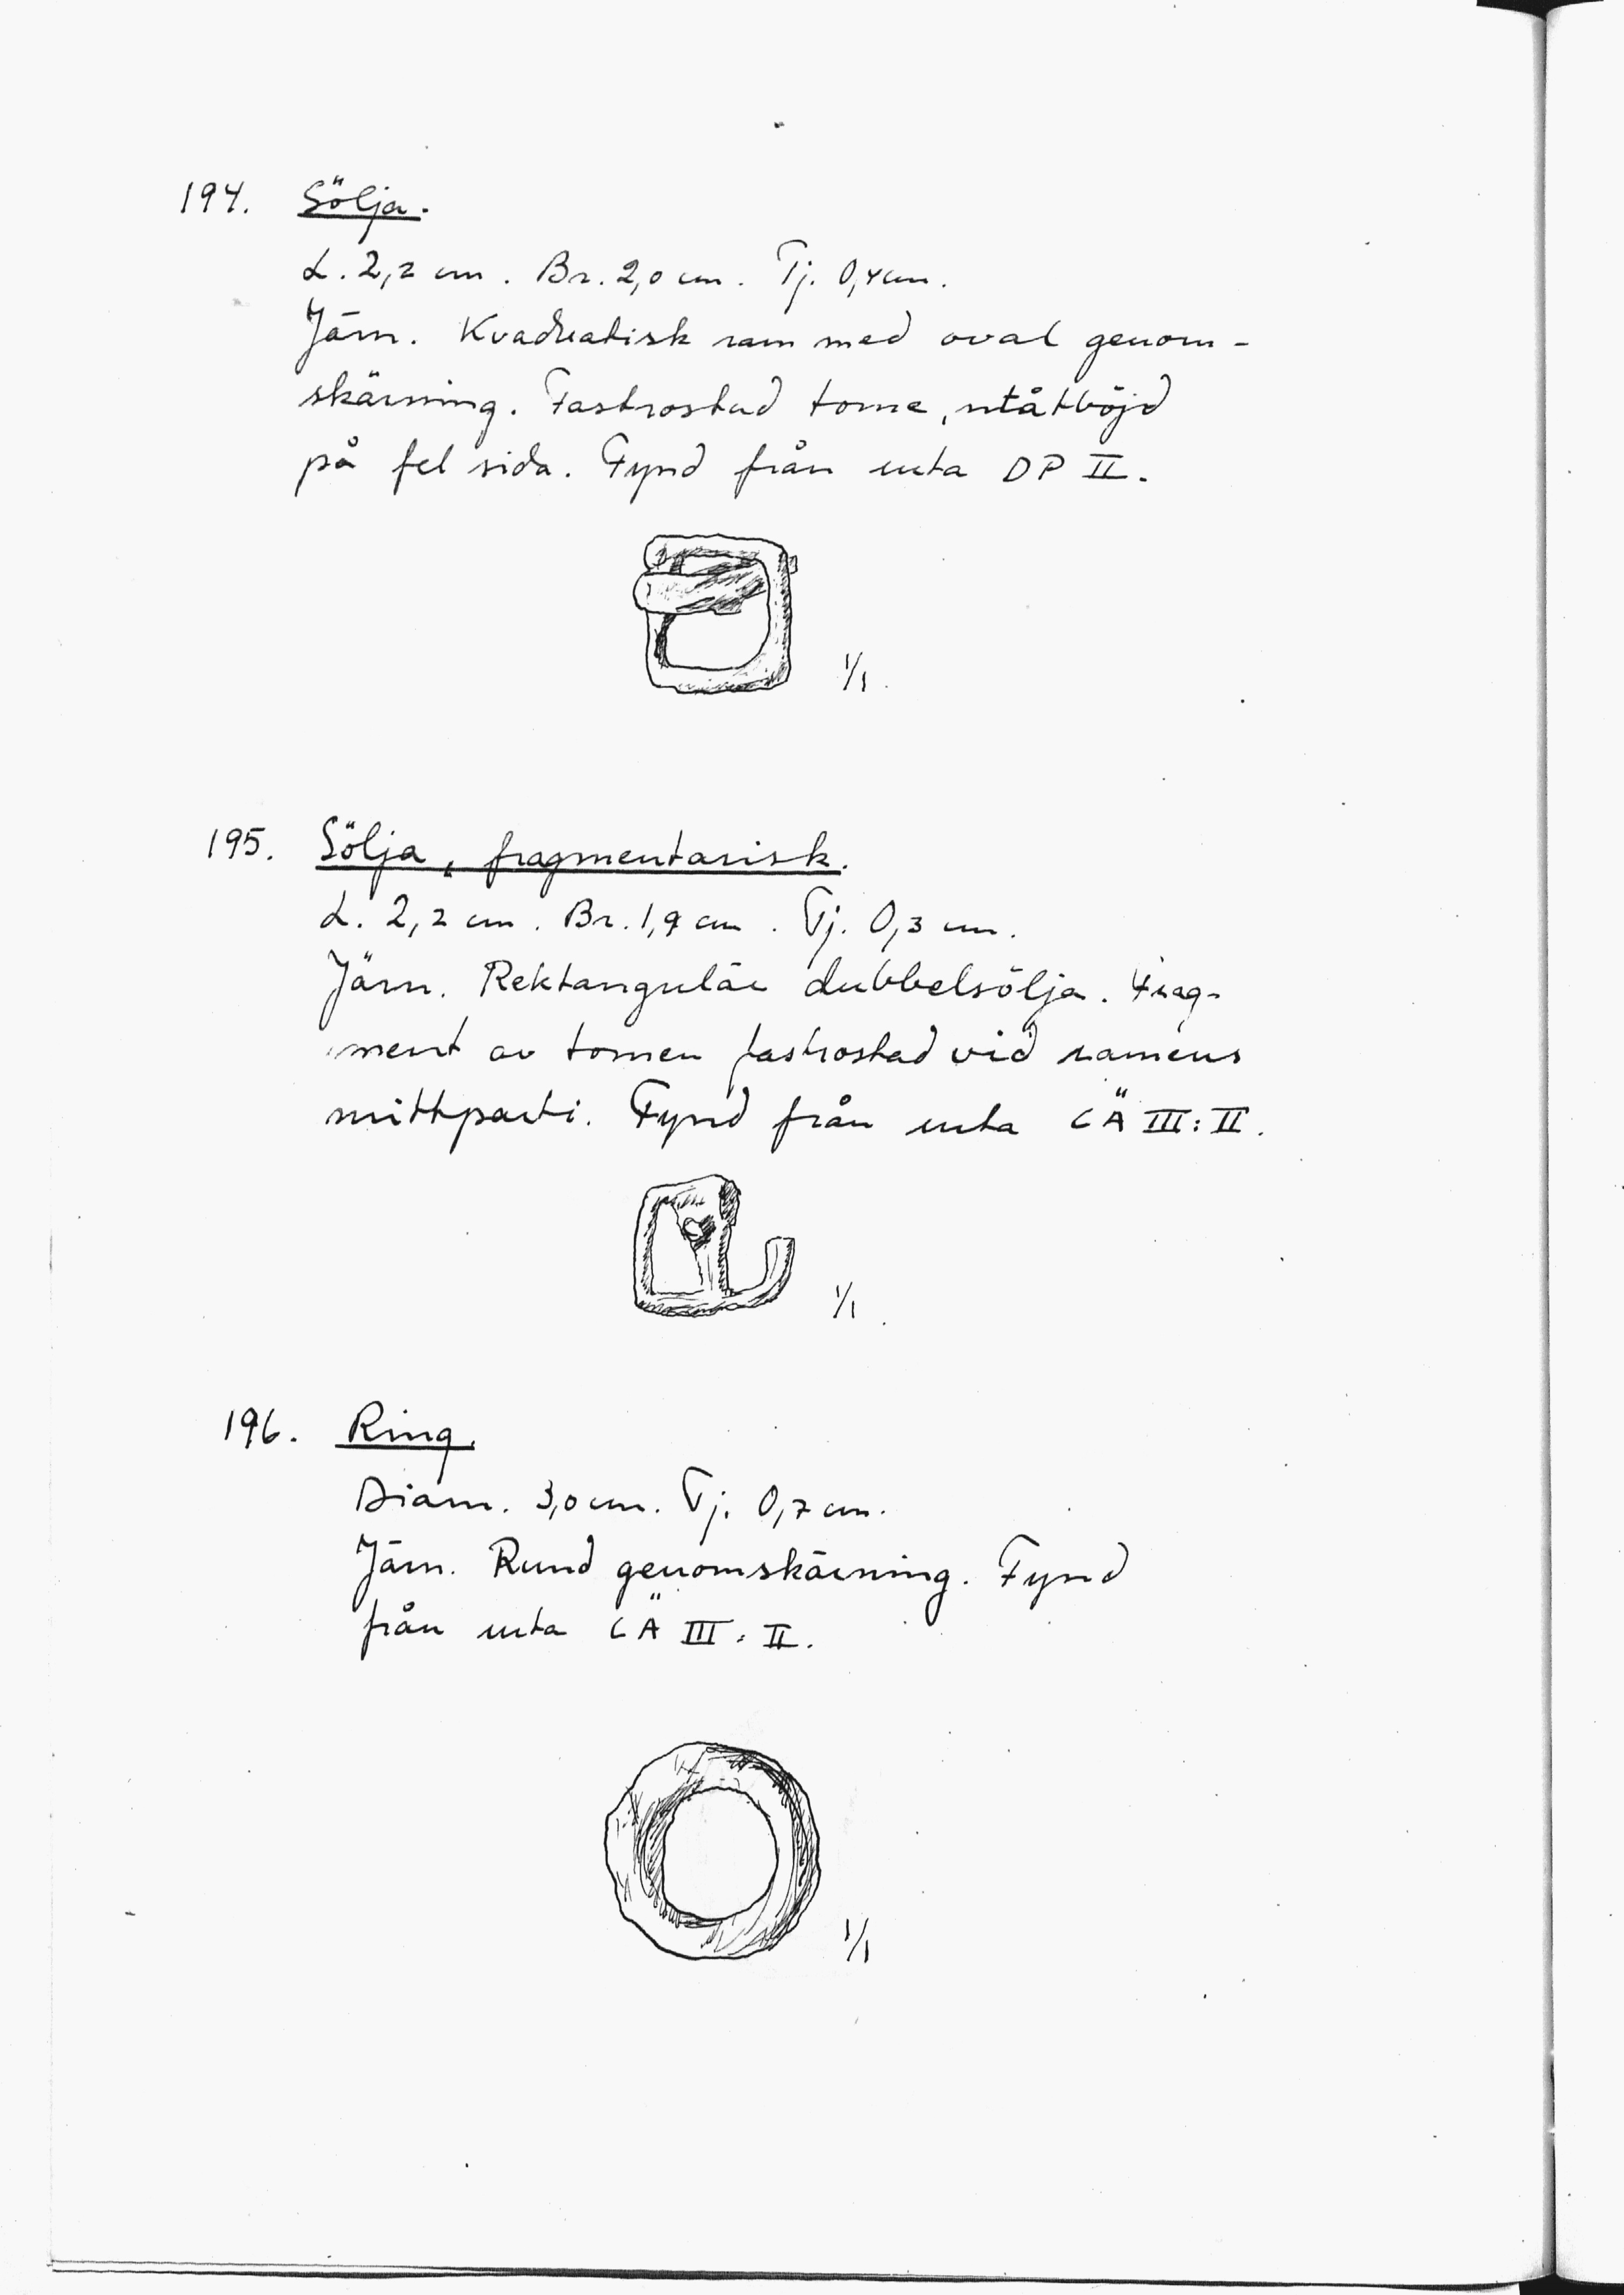 194. Sölja.
L. 2,2 cm. Br. 2,0 cm. Tj. 0,4 cm.
Järn. Kvadratisk ram med oval genom-
skärning. Fastrostad torne, utåtböjd
på fel sida. Fynd från ruta DP II.
1/1.
195. Sölja, fragmentarisk.
L. 2,2 cm. Br. 1,9 cm. Tj. 0,3 cm.
Järn. Rektangulär dubbelsölja. Frag-
ment av tornen fastrostad vid ramens
mittparti. Fynd från ruta CÄ III:II.
1/1.
196. Ring.
Diam. 3,0 cm. Tj. 0,7 cm.
Järn. Rund genomskärning. Fynd
från ruta CÄ III:II.
1/1